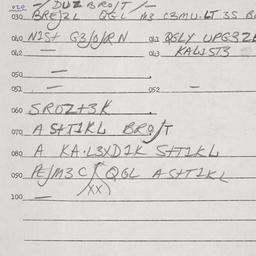 020 — / DUZ BRO/T / —
030 BRE/2L QGL M3 C3MU.LT 3S
040 N1S+ G3/0/RN 041 QGLY UPG32L
042 — 043 KAL1ST3
050 — .
051 — 052 —
060 SROZ+3K .
070 A S+T1KL BRO/T
080 A KA.L3XD1K S+T1KL
090 PE/M3 C/QGL A S+T1KL
(XX)
100 —